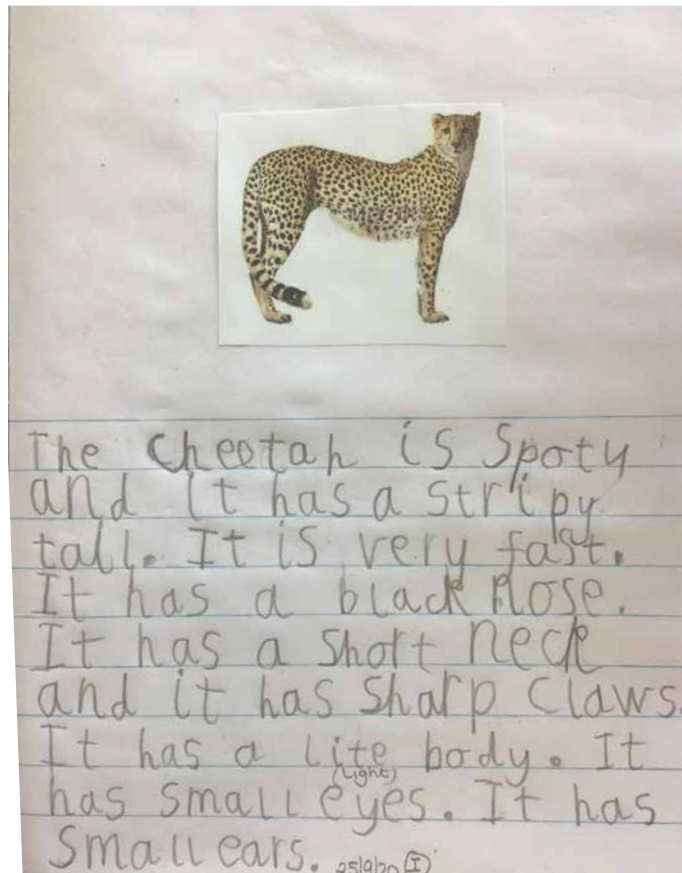 The cheetah is Spoty
and it has a stripy
tall. It is very fast.
It has a black Nose.
It has a short neck
and it has sharp claws.
It has a lite body. It
(Light)
has small eyes. It has
small ears. 25/9/20 I